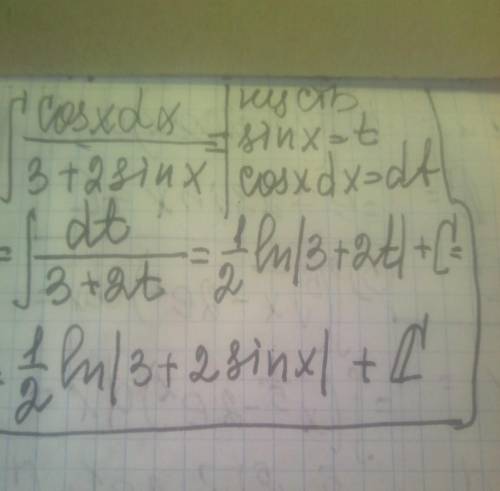 ∫ cosxdx / 3+2sinx = | пусть
sinx=t
cosxdx=dt |
= ∫ dt / 3+2t = 1/2 ln|3+2t| + C =
= 1/2 ln|3+2sinx| + C